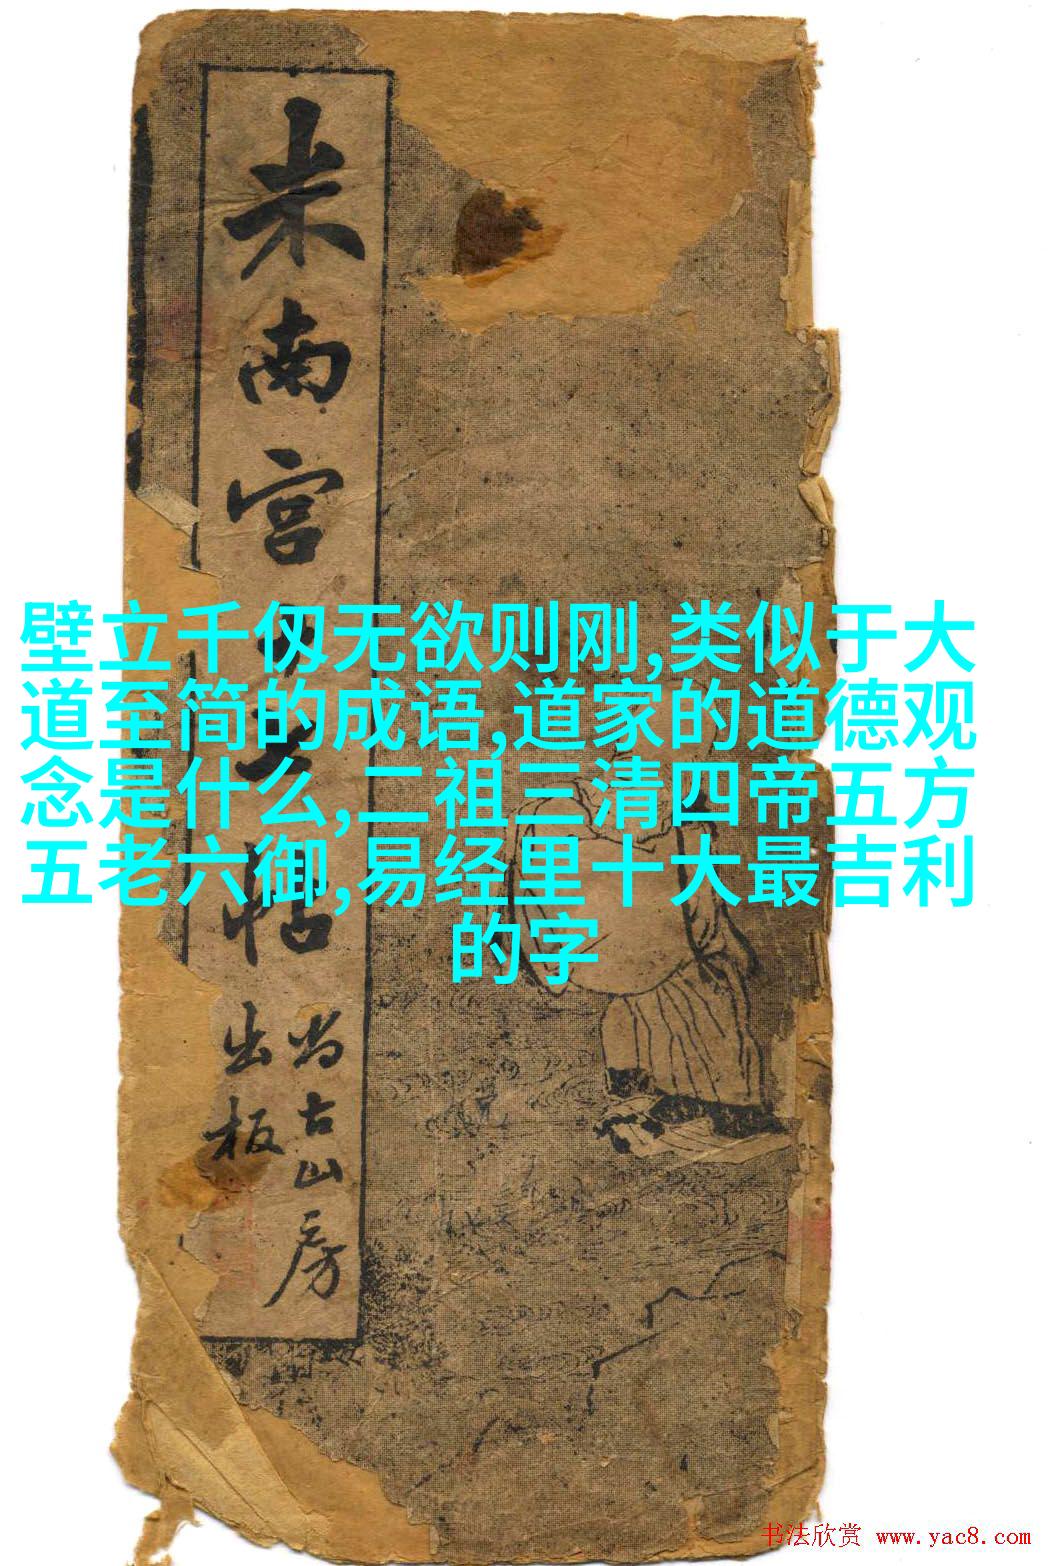 米南宫
帖
尚古山房
出板
壁立千仞无欲则刚,类似于大
道至简的成语,道家的道德观
念是什么,二祖三清四帝五方
五老六御,易经里十大最吉利
的字
书法欣赏 www.yac8.com